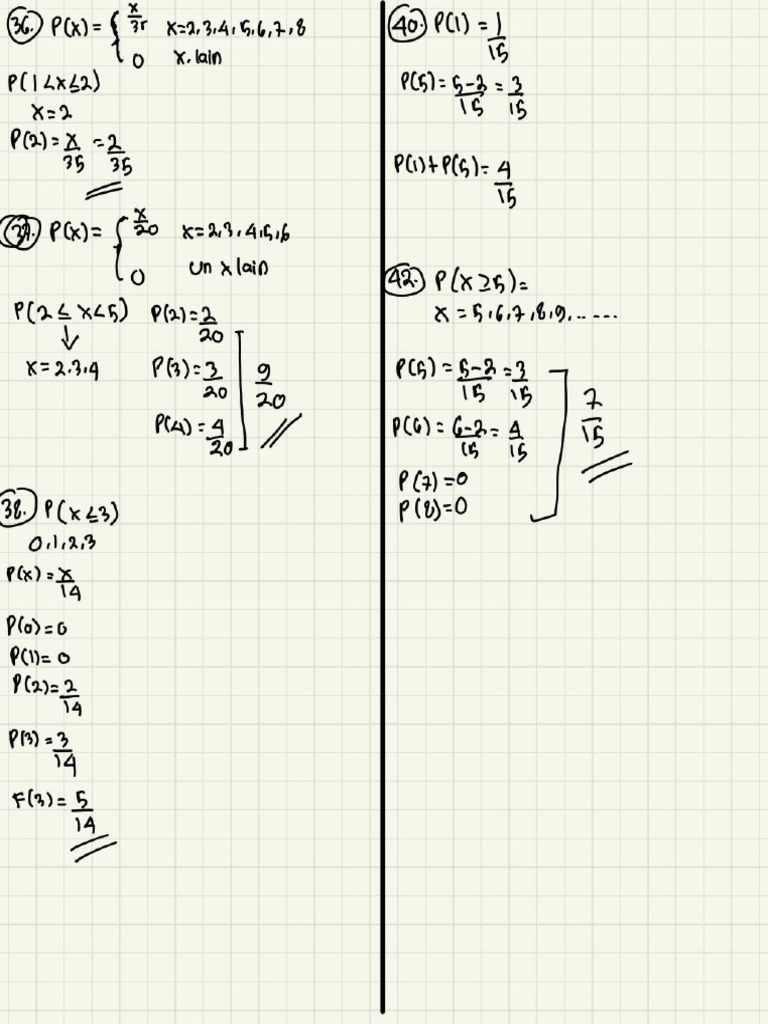 36. P(x) = { x/35 x=2,3,4,5,6,7,8
0 x lain
P(1<x≤2)
x=2
P(2)= x/35 = 2/35
37. P(x) = { x/20 x=2,3,4,5,6
0 un x lain
P(2≤x<5) P(2)= 2/20
↓
x=2,3,4 P(3)= 3/20 9/20
P(4)= 4/20
38. P(x≤3)
0,1,2,3
P(x)= x/14
P(0)=0
P(1)=0
P(2)= 2/14
P(3)= 3/14
F(3)= 5/14
40. P(1)= 1/15
P(5)= 5-2/15 = 3/15
P(1)+P(5)= 4/15
42. P(x≥5)=
x=5,6,7,8,9,......
P(5)= 5-2/15 = 3/15
7/15
P(6)= 6-2/15 = 4/15
P(7)=0
P(8)=0